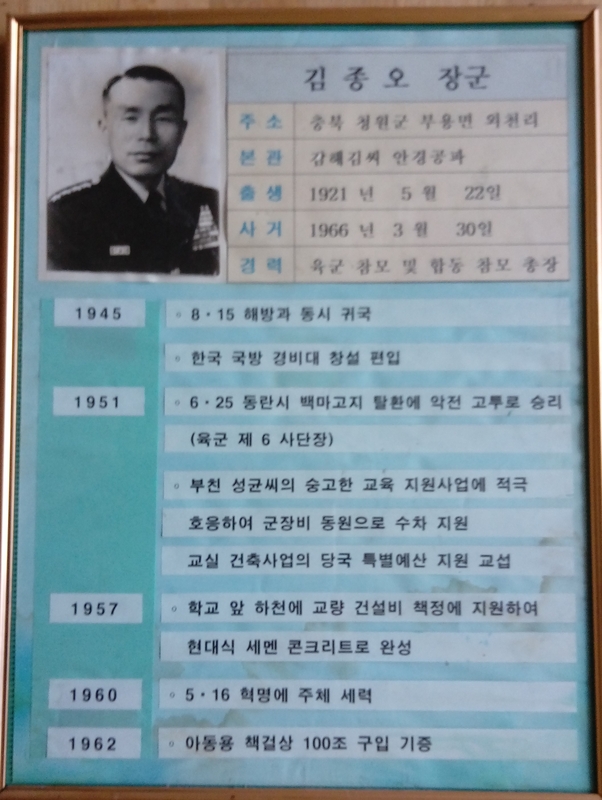 김 종 오 장군
주 소 충북 청원군 부용면 외천리
본 관 김해김씨 안경공파
출 생 1921 년 5 월 22일
사 거 1966 년 3 월 30일
경 력 육군 참모 및 합동 참모 총장
1945 ◦ 8·15 해방과 동시 귀국
◦ 한국 국방 경비대 창설 편입
1951 ◦ 6·25 동란시 백마고지 탈환에 악전 고투로 승리
(육군 제 6 사단장)
◦ 부친 성균씨의 숭고한 교육 지원사업에 적극
호응하여 군장비 동원으로 수차 지원
교실 건축사업의 당국 특별예산 지원 교섭
1957 ◦ 학교 앞 하천에 교량 건설비 책정에 지원하여
현대식 세멘 콘크리트로 완성
1960 ◦ 5·16 혁명에 주체 세력
1962 ◦ 아동용 책걸상 100조 구입 기증